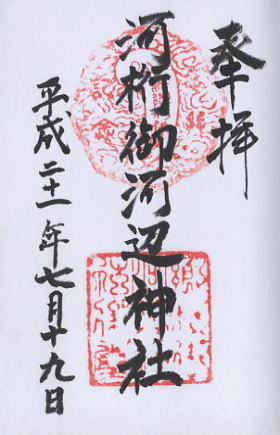 奉拝
河桁御河辺神社
平成二十一年七月十九日